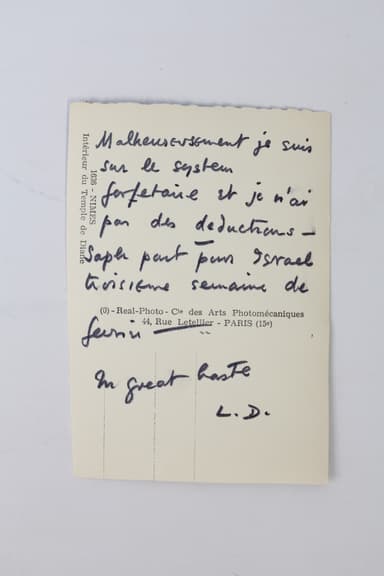 Malheureusement je suis
sur le system
forfetaire et je n'ai
pas des deductions –
Saph part pour Israel
troisieme semaine de
fevrier
In great haste
L.D.
1636 - NIMES
Intérieur du Temple de Diane
(O) - Real-Photo - Cie des Arts Photomécaniques
44, Rue Letellier - PARIS (15e)